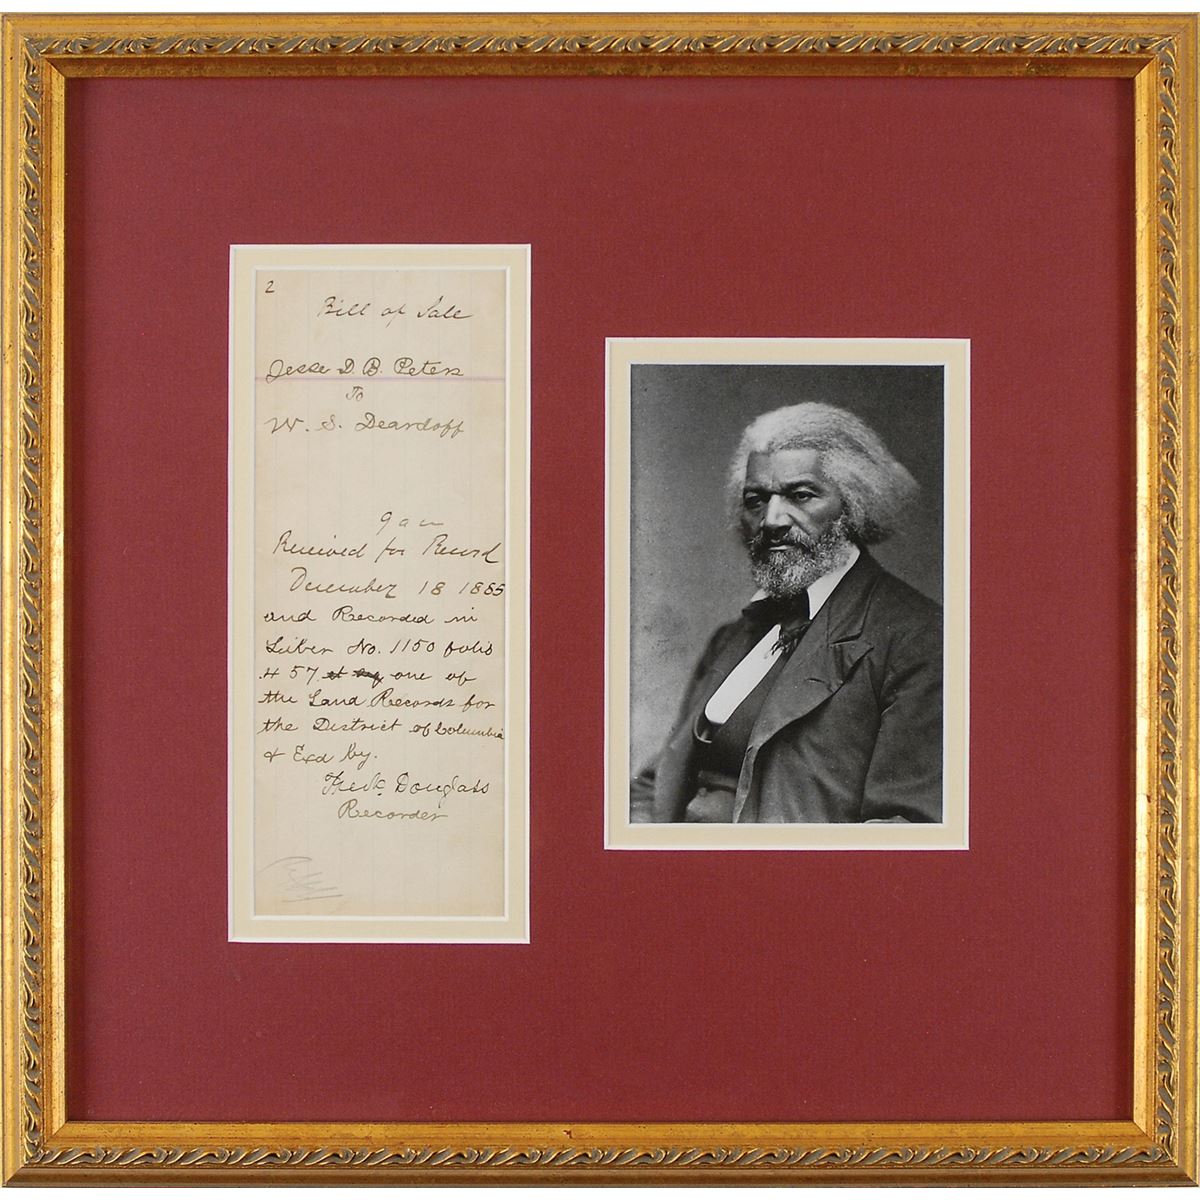 2
Bill of Sale
Jesse D. B. Peters
To
W. S. Deardoff
9 a m
Received for Record
December 18 1885
and Recorded in
Liber No. 1150 folio
457 one of
the Land Records for
the District of Columbia
& Exd by.
Fredk Douglass
Recorder